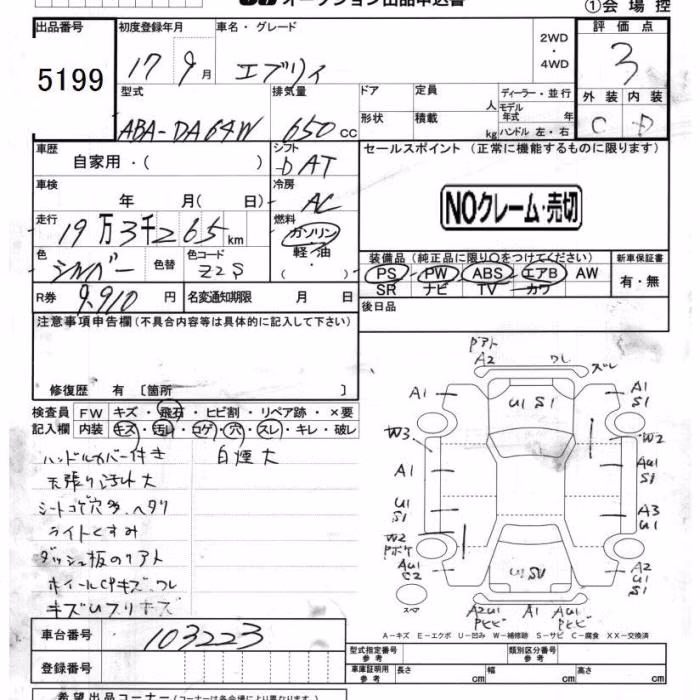 オークション出品申込書
①会場控
出品番号 5199
初度登録年月 17 9月
車名・グレード エブリィ
2WD・4WD
評価点 3
型式 ABA-DA64W
排気量 650 CC
ドア
定員 人
ディーラー・並行
モデル年式 年
形状
積載 kg
ハンドル 左・右
外装 内装
C D
車歴 自家用・( )
シフト DAT
セールスポイント(正常に機能するものに限ります)
車検 年 月( 日)
冷房 AC
NOクレーム・売切
走行 19万3千265km
燃料 ガソリン 軽・油 ・( )
色 シルバー
色替
色コード Z2S
装備品(純正品に限り○をつけてください)
新車保証書
PS PW ABS エアB AW
SR ナビ TV カワ
有・無
R券 9,910円
名変通知期限 月 日
後日品
注意事項申告欄(不具合内容等は具体的に記入して下さい)
修復歴 有 [箇所 ]
検査員記入欄
FW キズ・飛石・ヒビ割・リペア跡・×要
内装 キズ・汚れ・コゲ・穴・スレ・キレ・破レ
ハンドルカバー付き 白煙大
天張り汚れ大
シートコゲ穴多、ヘタリ
ライトくすみ
ダッシュ板のリアト
ホイールCPキズ、ワレ
A2 ワレ ズレ
A1 U1 S1 A1 S1
W3 W2
A1 AU1 S1
U1 S1 A3 U1
W2
AU1 C2 U1 S1 A2 U1 S1
スペア
A2U1 A1 AU1
車台番号 103223
A-キズ E-エクボ U-凹み W-補修跡 S-サビ C-腐食 XX-交換済
登録番号
型式指定番号 参考
類別区分番号 参考
車庫証明用 参考 長さ cm 幅 cm 高さ cm
希望出品コーナー